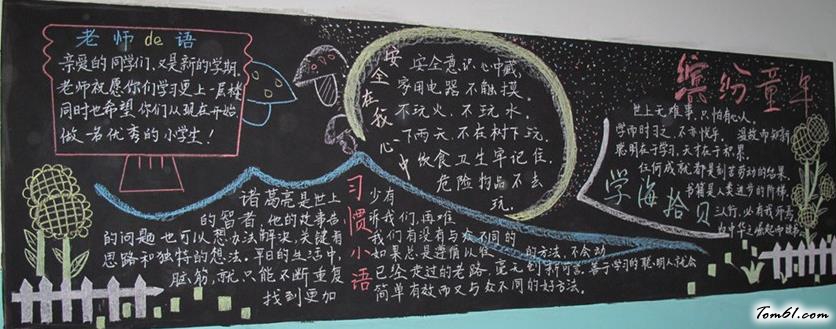 老师de语
亲爱的同学们,又是新的学期,
老师祝愿你们学习更上一层楼
同时也希望你们从现在开始,
做一名优秀的小学生!
安全在我心中
安全意识心中藏,
家用电器不能摸。
不玩火,不玩水,
下雨天,不在树下玩,
饮食卫生牢记住,
危险物品不去
玩。
缤纷童年
世上无难事,只怕有心人。
学而时习之,不亦悦乎,温故而知新
聪明在于学习,天才在于积累。
任何成就都是刻苦劳动的结果,
书籍是人类进步的阶梯,
学海拾贝
三人行,必有我师焉,
为中华之崛起而读书
习惯小语
诸葛亮是世上
的智者,他的故事告
的问题也可以想办法解决,关键看
思路和独特的想法。平日的生活中,
脑筋,就只能不断重复
找到更加
少有
诉我们,再难
我们有没有与众不同的
如果总是遵循以往的方法,不会动
已经走过的老路,毫无创新可言,善于学习的聪明人就会
简单有效而又与众不同的好方法。
Tom61.com